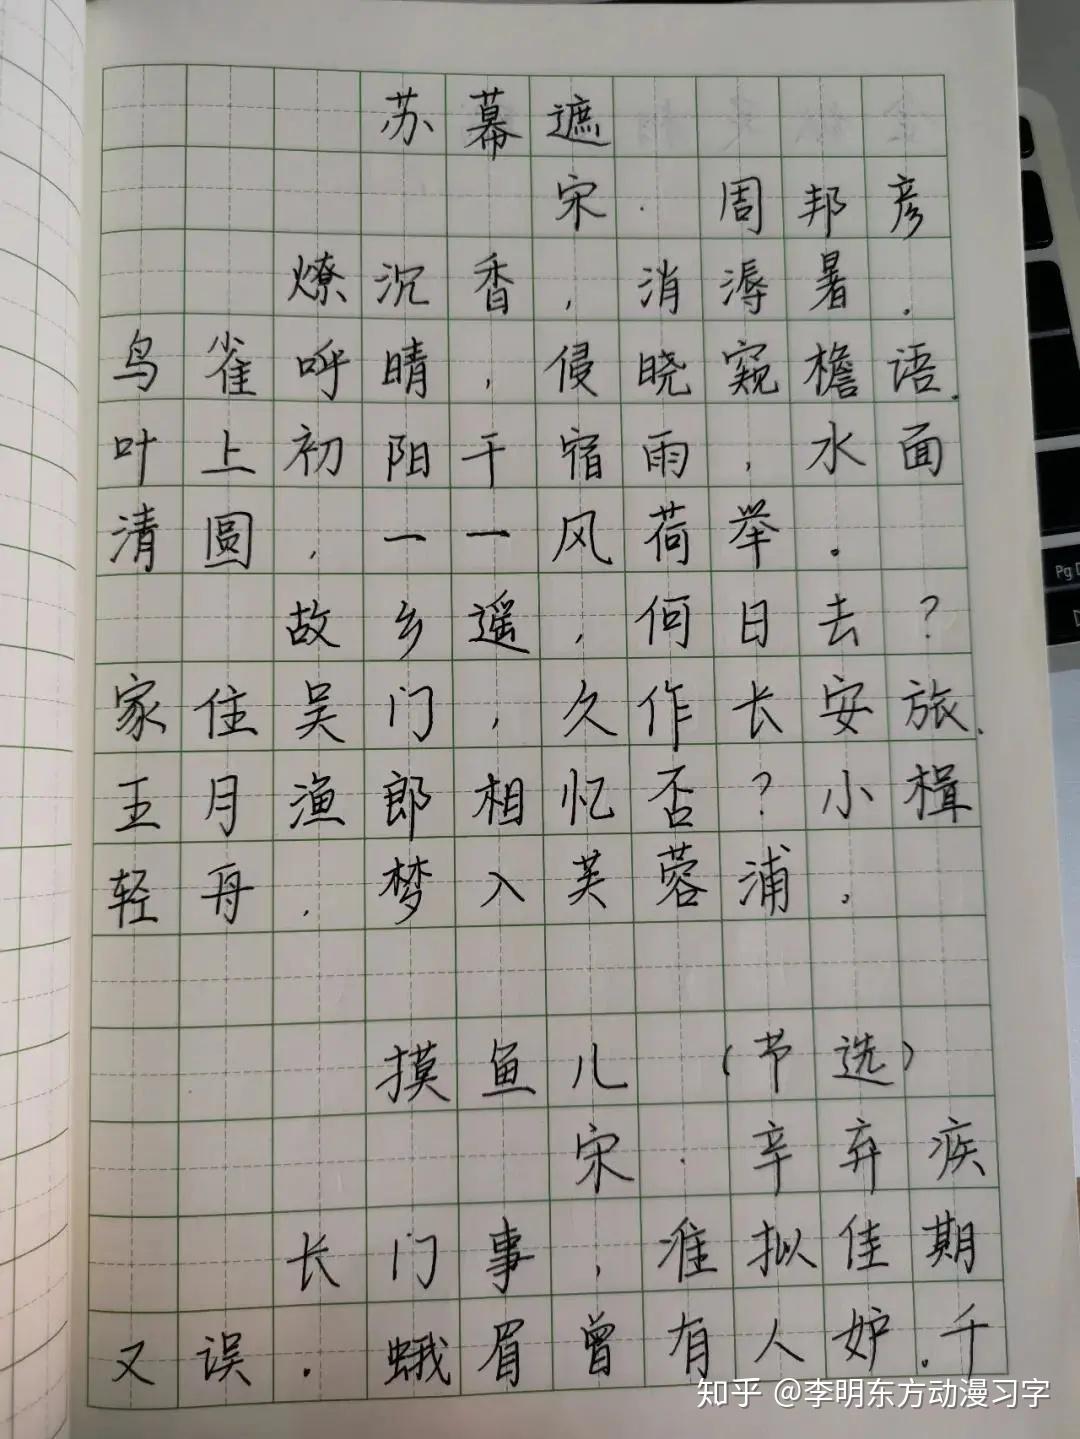 苏幕遮
宋·周邦彦
燎沉香，消溽暑。
鸟雀呼晴，侵晓窥檐语。
叶上初阳干宿雨，水面
清圆，一一风荷举。
故乡遥，何日去？
家住吴门，久作长安旅。
五月渔郎相忆否？小楫
轻舟，梦入芙蓉浦。
摸鱼儿（节选）
宋·辛弃疾
长门事，准拟佳期
又误。蛾眉曾有人妒。千
Pg D
知乎 @李明东方动漫习字